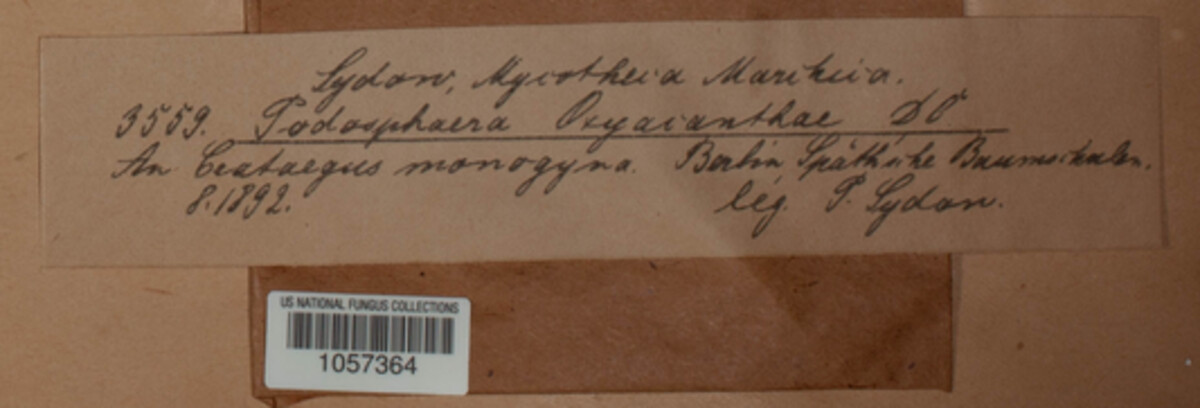 Sydow, Mycotheca Marchica.
3559. Podosphaera Oxyacanthae DC
An Crataegus monogyna. Berlin, Späth'sche Baumschulen.
8.1892. leg. P. Sydow.
US NATIONAL FUNGUS COLLECTIONS
1057364